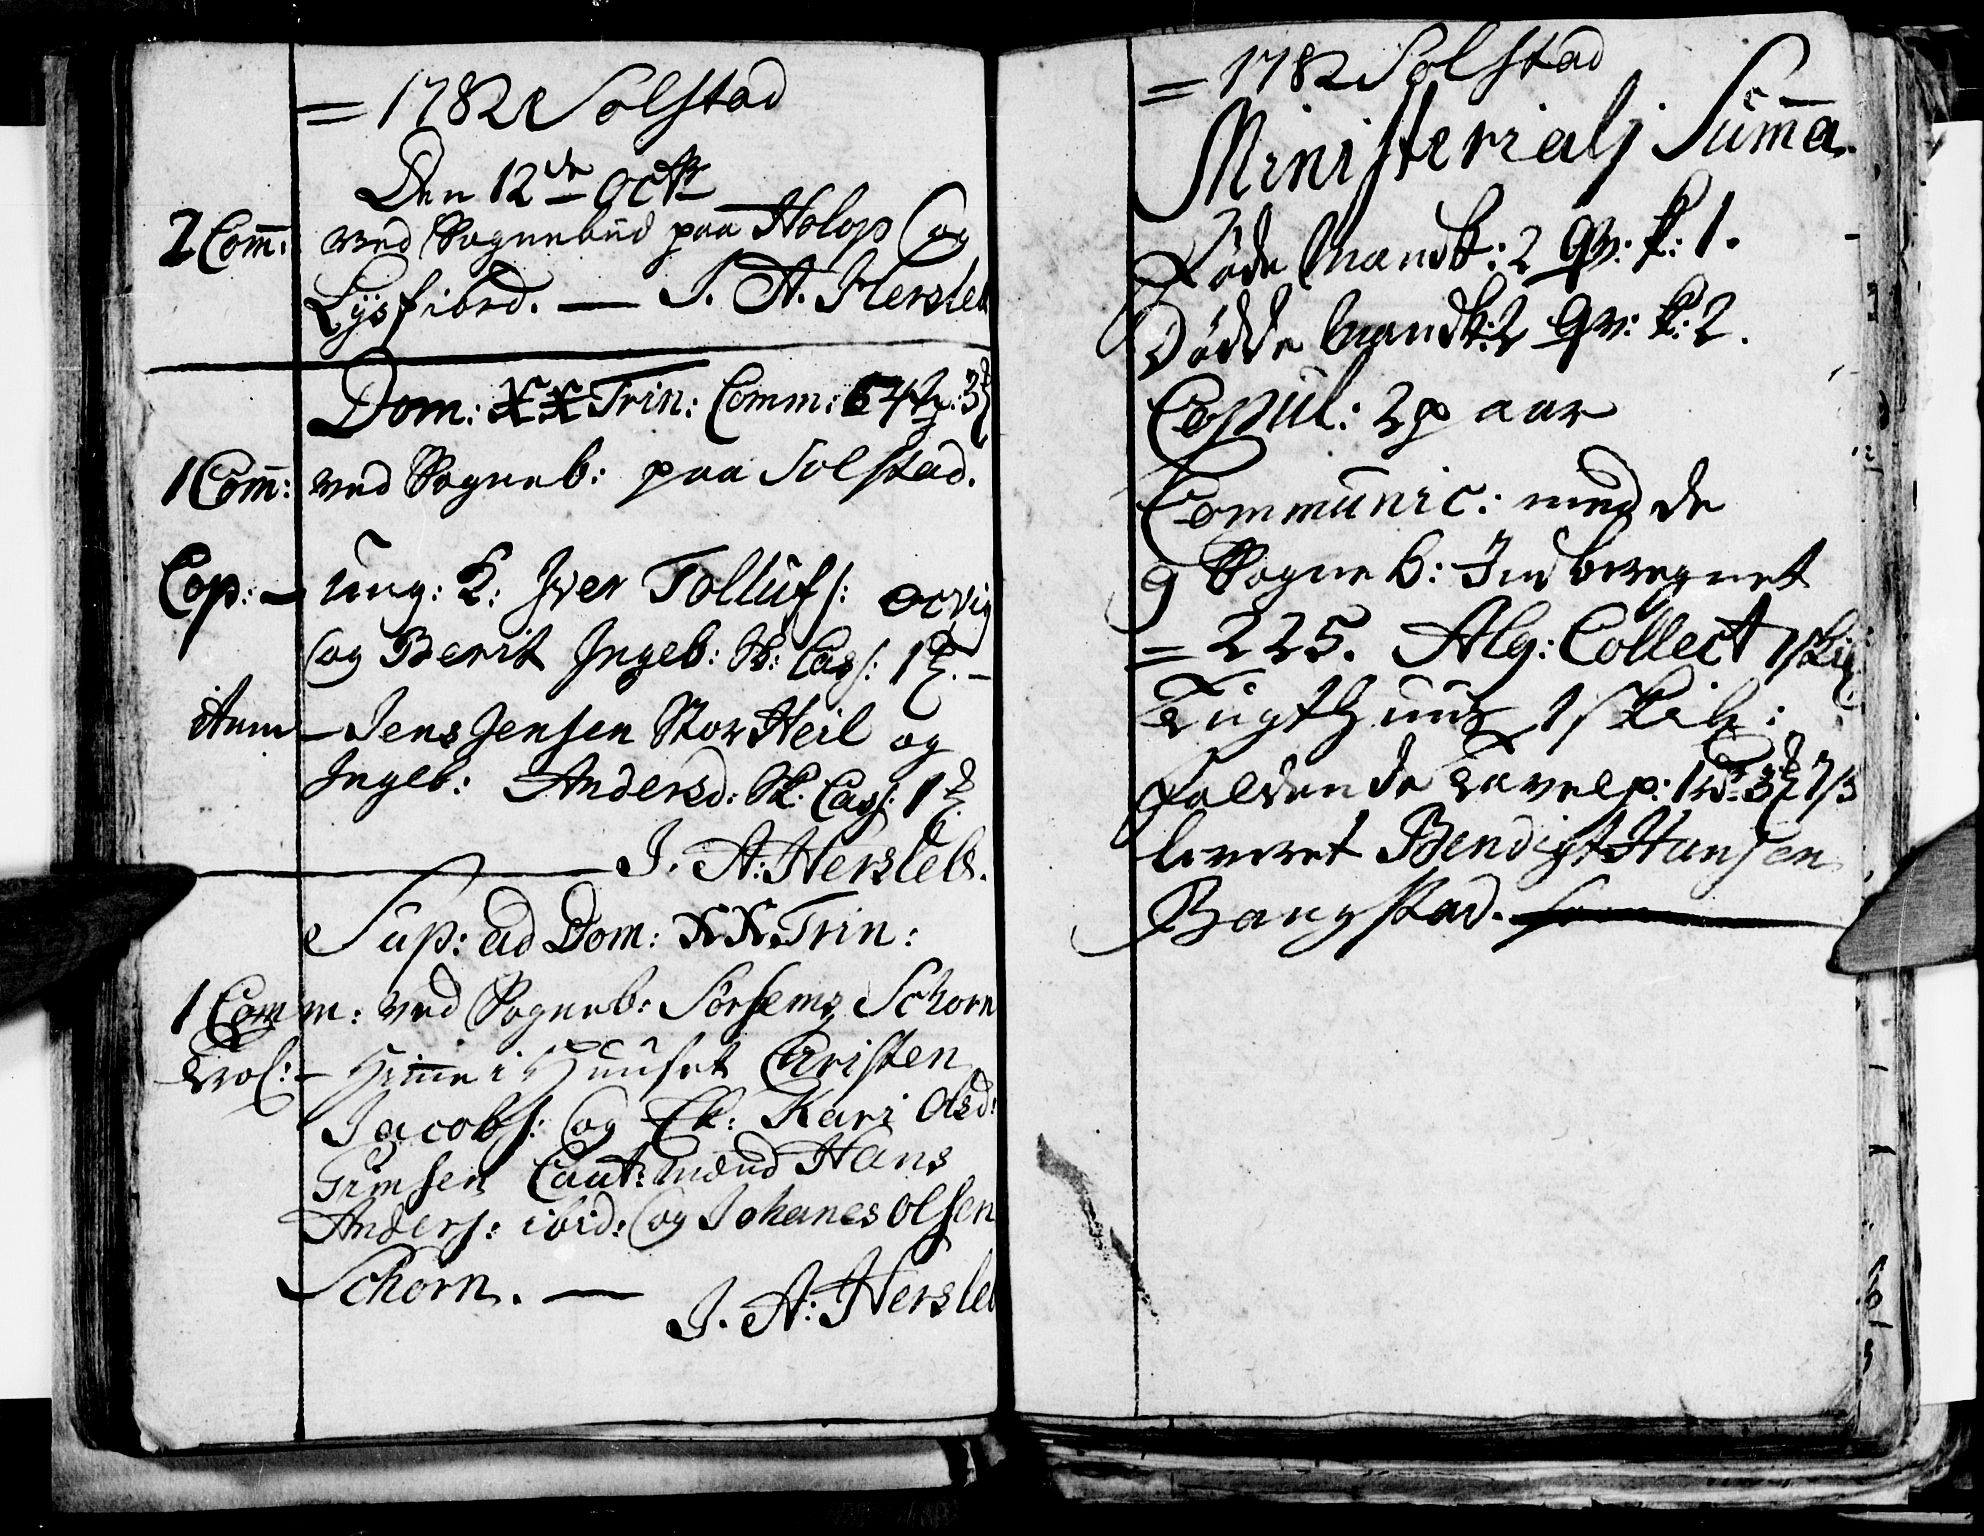 = 1782 Solstad
Den 12de Octbr
2 Com̅: ved Sognebud paa Holop og
Lysfiord. — J. A. Hersleb
Dom: XX Trin: Comm: 64
1 Com̅: ved Sogneb: paa Solstad.
Cop: — ung: K: Iver Tollufs:
og Berit Ingeb: Sk: Cass: 1
— Jens Jensen StorHeil og
Ingeb: Andersd: Sk: Cass: 1
J. A: Hersleb.
Sup: ad Dom: XX Trin:
1 Comm: ved Sogneb: Sørhems Schorn
Trol: — Hime i Huuset Christen
Jacobs: og Pk: Kari Olsd:
Grimsen Caut: mænd Hans
Anders: ibid: og Johanes Olsen
Schorn. —
J. A: Hersleb
= 1782 Solstad
Ministerialj Sum̅a.
Føde Mandk: 2 Qv: k: 1.
Dødde Mandk: 2 Qv: k: 2.
Copul: 2 paar
Communic: med de
9 Sogneb: Indberegnet
= 225. Alg: Collect 1 skil
Tugthuus 1 skil:
faldende Tavelp: 1 rd 3
leveret Bendigt Hansen
Bangstad.